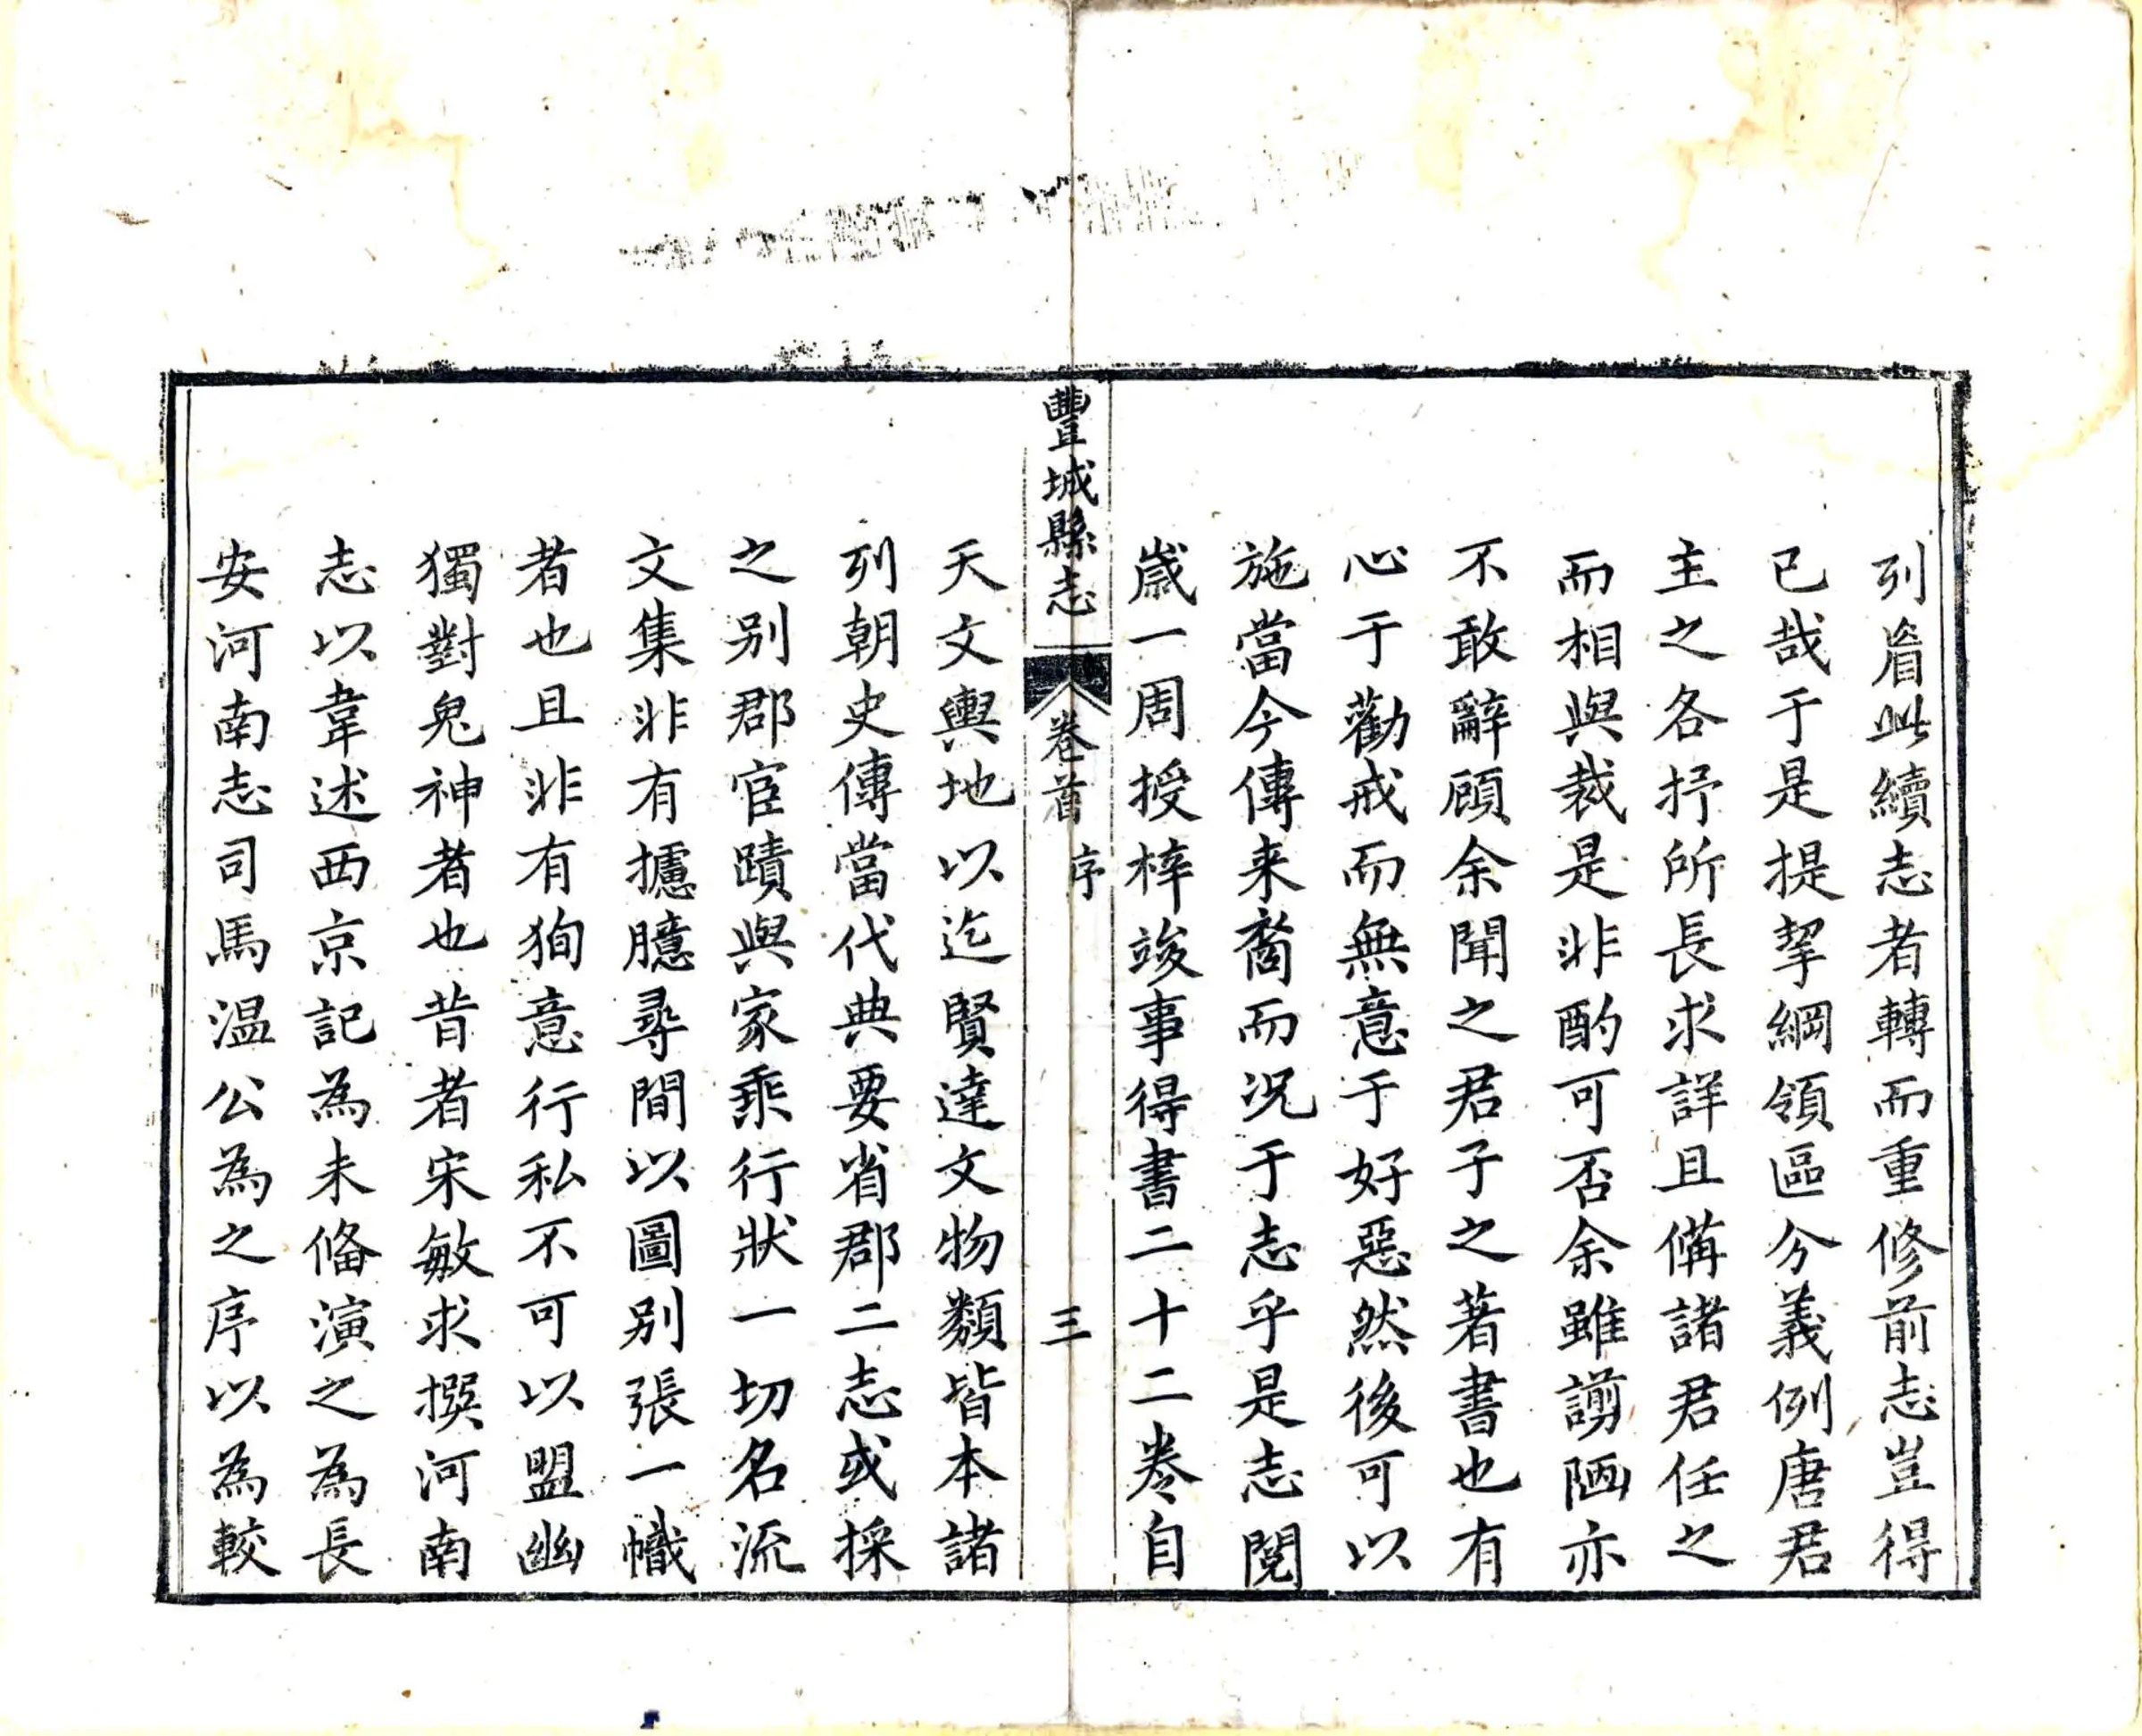 列眉此續志者轉而重修前志豈得
已哉于是提挈綱領區分義例唐君
主之各抒所長求詳且備諸君任之
而相與裁是非酌可否余雖謭陋亦
不敢辭顧余聞之君子之著書也有
心于勸戒而無意于好惡然後可以
施當今傳来裔而况于志乎是志閱
歲一周授梓竣事得書二十二卷自
豐城縣志 卷首 序 三
天文輿地以迄賢達文物類皆本諸
列朝史傳當代典要省郡二志或採
之别郡宦蹟與家乘行狀一切名流
文集非有攄臆尋間以圖别張一幟
者也且非有狥意行私不可以盟幽
獨對鬼神者也昔者宋敏求撰河南
志以韋述西京記為未俻演之為長
安河南志司馬温公為之序以為較